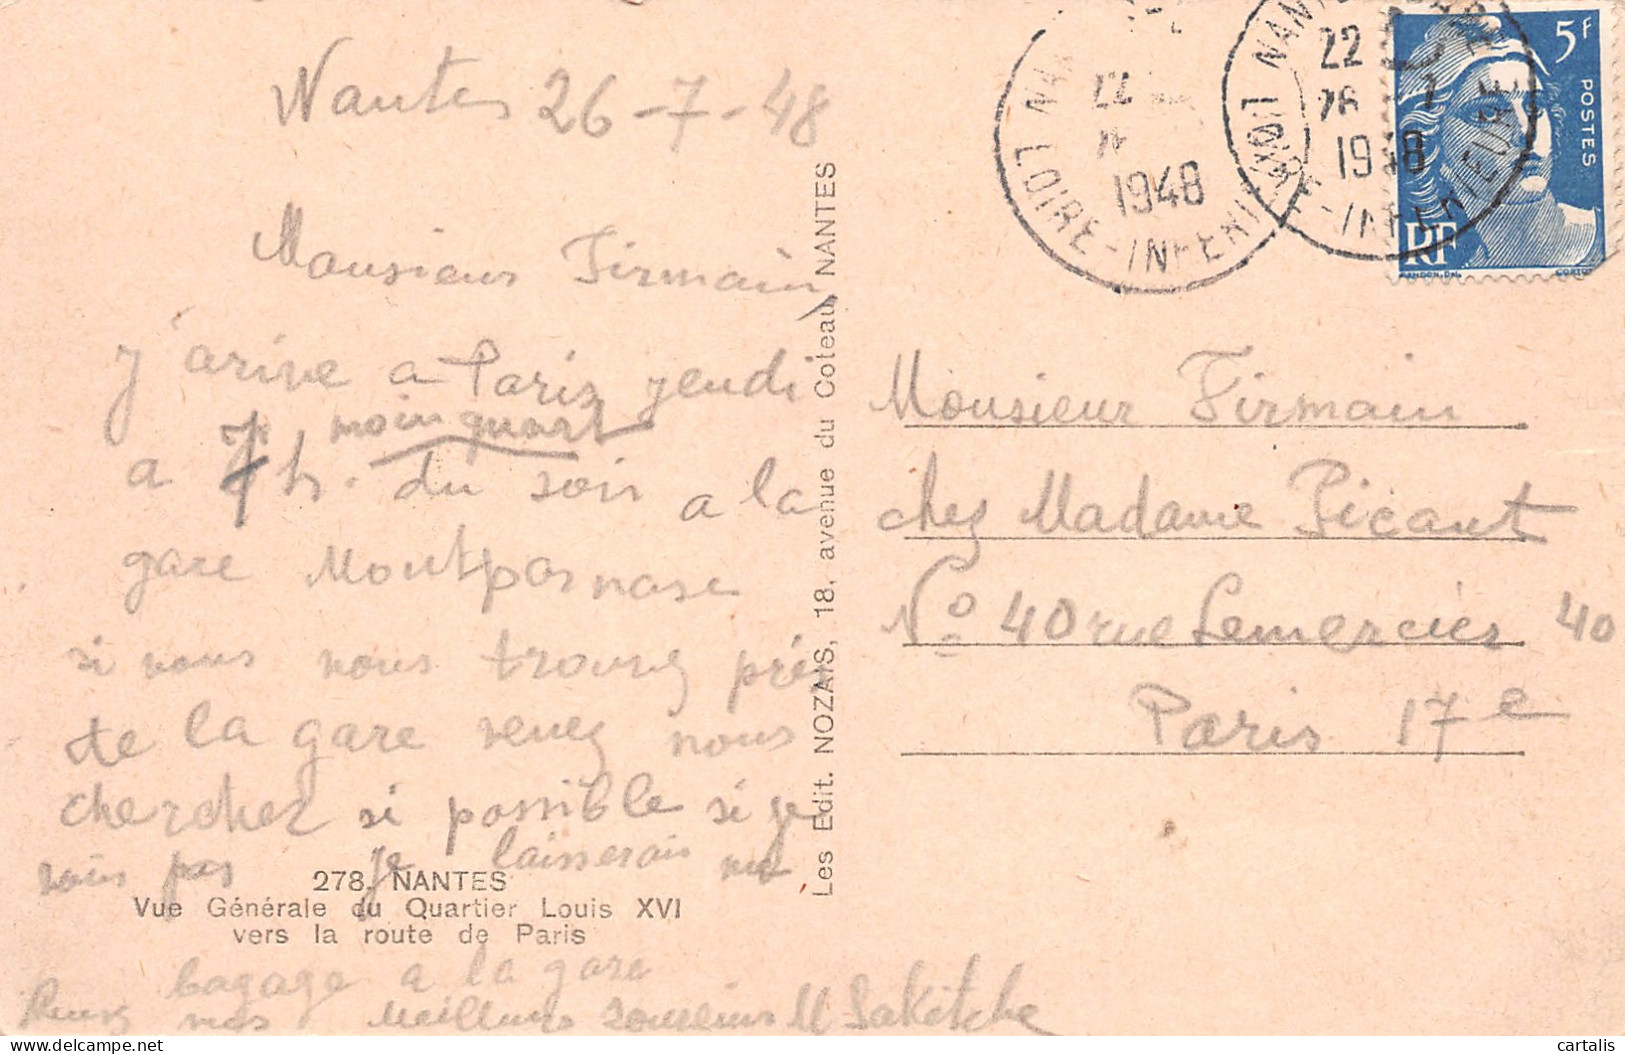 Nantes 26-7-48
Monsieur Firmain,
j'arive a Paris jeudi
moin quart
a 7 h. du soir a la
gare Montparnase
si vous nous trouvez prés
de la gare venez nous
chercher si possible si je
vois pas je laisserais ma
278. NANTES
Vue Générale du Quartier Louis XVI
vers la route de Paris
bagage a la gare
mes meilleurs souvenirs M Sakitche
Les Edit. NOZAIS, 18, avenue du Coteau, NANTES
22
1948
LOIRE-INFERIEURE
22
26 -7
1948
LOIRE-INFERIEURE
5F
POSTES
RF
GANDON, DEL.
CORTOT
Monsieur Firmain
chez Madame Picaut
No 40 rue Lemercier 40
Paris 17e
cartalis
delcampe.net